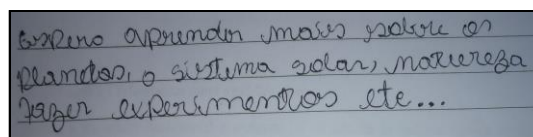 espero aprender mais sobre os
planetas, o sistema solar, natureza
fazer experimentos etc...